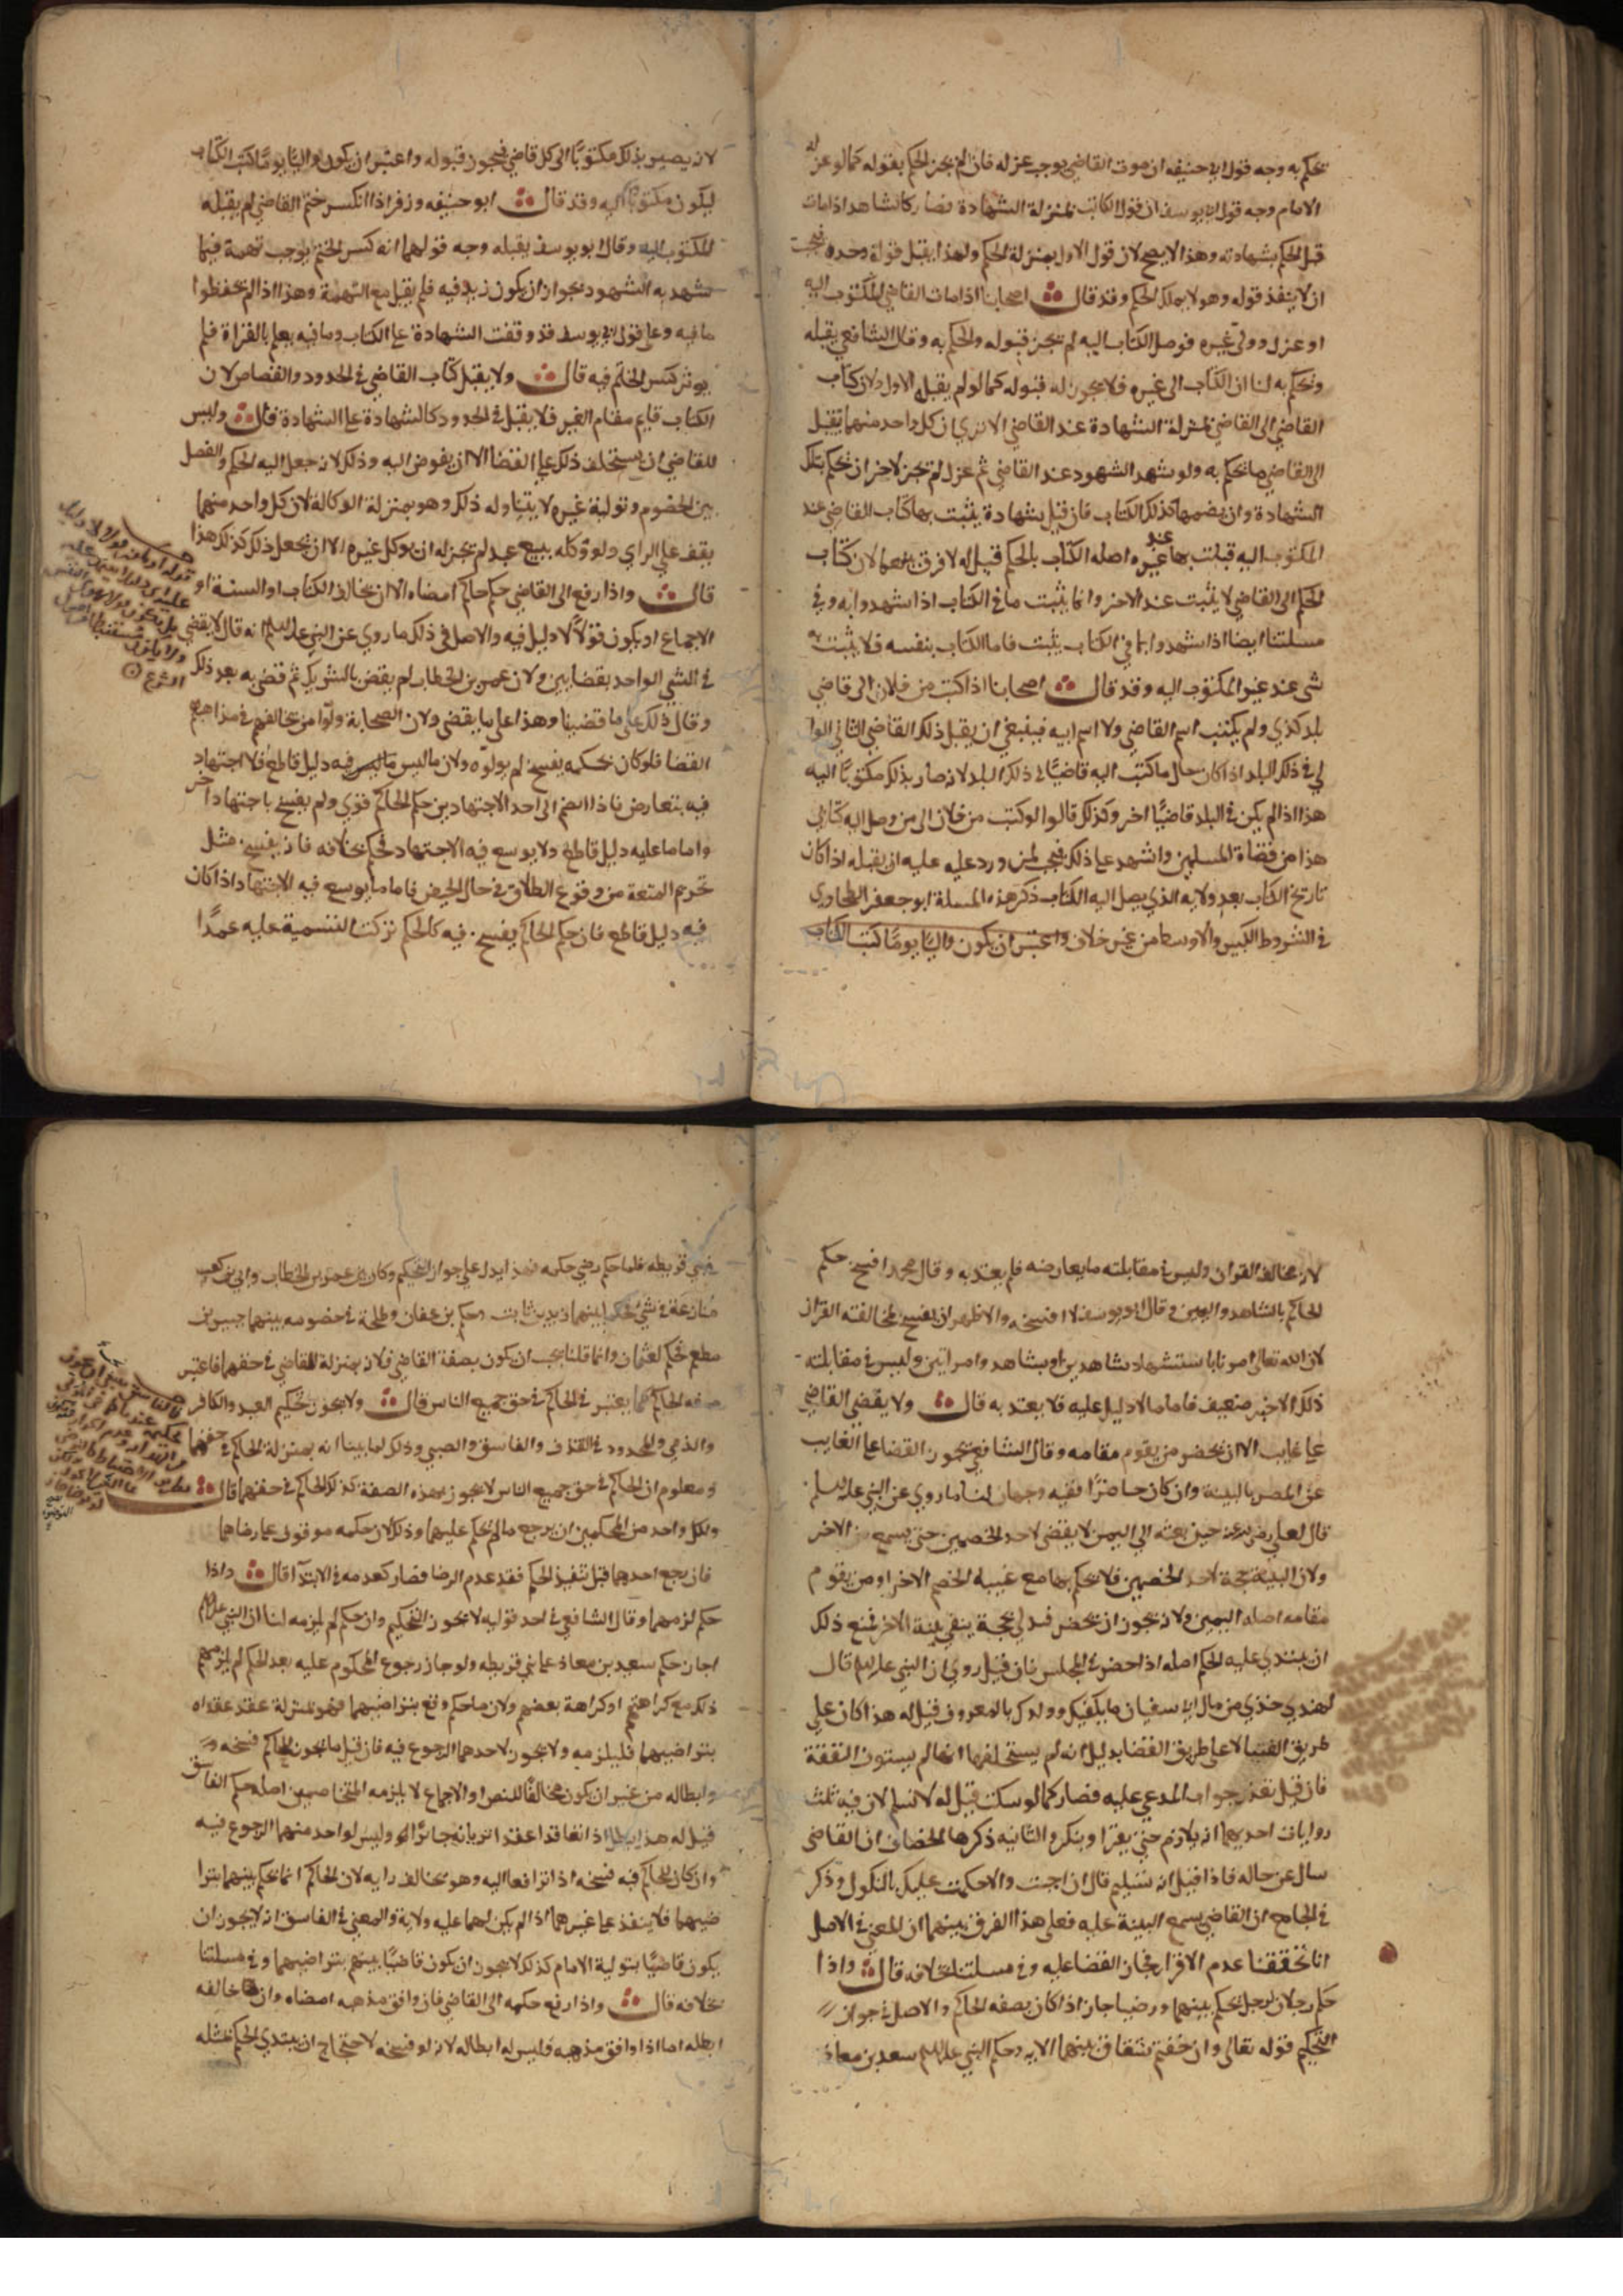 يحكم به وجه قول ابي حنيفه ان موت القاضي يوجب عزله فان لم يجز الحكم بقوله كما لو عزله
الامام وجه قول ابو يوسف ان قول الكاتب بمنزلة الشهادة فصار كالشاهد اذا مات
قبل الحكم بشهادته وهذا لا يصح لان قول الاول بمنزلة الحكم ولهذا يقبل قوله وحده فيجب
ان لا ينفذ قوله وهو لا يملك الحكم وقد قال اصحابنا اذا مات القاضي المكتوب اليه
او عزل وولي غيره فوصل الكتاب اليه لم يجز قبوله والحكم به وقال الشافعي يقبله
ويحكم به لنا ان الكتاب الى غيره فلا يجوز له قبوله كما لو لم يقبله الاول ولان كتاب
القاضي الى القاضي بمنزلة الشهادة عند القاضي الا تري ان كل واحد منهما يقبل
القاضي ما يحكم به ولو شهد الشهود عند القاضي ثم عزل لم يجز لاخر ان يحكم بتلك
الشهادة وان يضمها كذلك الكتاب فان قيل بشهادة يثبت بها كتاب القاضي عند
المكتوب اليه قبلت بها عند غيره اصله الكتاب بالحكم قيل له لا فرق بينهما لان كتاب
الحكم الى القاضي لا يثبت عند الاخر وانما يثبت ما في الكتاب اذا شهدوا به وفي
مسلتنا ايضا اذا شهدوا بما في الكتاب يثبت فاما الكتاب بنفسه فلا يثبت به
شي عند غير المكتوب اليه وقد قال اصحابنا اذا كتب من فلان الى قاضي
بلد كذي ولم يكتب اسم القاضي ولا اسم ابيه فينبغي ان يقبل ذلك القاضي الثاني الوا
لي في ذلك البلد اذا كان حال ما كتب اليه قاضيًا في ذلك البلد لانه صار بذلك مكتوبًا اليه
هذا اذا لم يكن في البلد قاضيًا اخر وكذلك قالوا لو كتب من فلان الى من وصل اليه كتابي
هذا من قضاة المسلمين واشهد على ذلك فيجب لمن ورد عليه ان يقبله اذا كان
تاريخ الكتاب بعد ولايه الذي يصل اليه الكتاب ذكر هذه المسلة ابو جعفر الطحاوي
في الشروط الكبير والاوسط من غير خلاف واعتبر ان يكون واليًا يوم كتب الكتاب
لان يصير بذلك مكتوبًا الى كل قاضي فيجوز قبوله واعتبر ان يكون واليًا يوم كتب الكتاب
ليكون مكتوبًا اليه وقد قال ابو حنيفه وزفر اذا انكسر ختم القاضي لم يقبله
المكتوب اليه وقال ابو يوسف يقبله وجه قولهما انه كسر الختم يوجب تهمة فيما
شهد به الشهود بجواز ان يكون زيد فيه فلم يقبل مع التهمة وهذا اذا لم يحفظوا
ما فيه وعلى قول ابي يوسف قد وقفت الشهادة على الكتاب وما فيه يعلم بالقراة فلم
يوثر كسر الختم فيه قال ولا يقبل كتاب القاضي في الحدود والقصاص لان
الكتاب قايم مقام الغير فلا يقبل في الحدود كالشهادة على الشهادة قال وليس
للقاضي ان يستخلف ذلك على القضا الا ان يفوض اليه وذلك لانه جعل اليه الحكم والفصل
بين الخصوم وتولية غيره لا يتناوله ذلك وهو بمنزلة الوكالة لان كل واحد منهما
يقف على الراي ولو وكله ببيع عبد لم يجز له ان يوكل غيره الا ان يجعل ذلك كذلك هذا
قال واذا رفع الى القاضي حكم حاكم امضاه الا ان يخالف الكتاب او السنة او
الاجماع او يكون قولًا لا دليل فيه والاصل في ذلك ما روي عن النبي عليه السلم انه قال لا يقضي
في الشي الواحد بقضايين ولان عمر بن الخطاب لم يقض بالتشريك ثم قضى به بعد ذلك
وقال ذلك على ما قضينا وهذا على ما يقضى ولان الصحابة ولوا من يخالفهم في مذاهبهم
القضا فلو كان حكمه يفسخ لم يولوه ولان ما ليس فيه دليل قاطع فلا اجتهاد
فيه يتعارض فاذا انضم الى احد الاجتهادين حكم الحاكم قوي ولم يفسخ باجتهاد اخر
واما ما عليه دليل قاطع ولا يوسع فيه الاجتهاد فحكم بخلافه فانه يفسخ مثل
تحريم المتعة من وقوع الطلاق في حال الحيض فاما ما يوسع فيه الاجتهاد اذا كان
فيه دليل قاطع فان حكم الحاكم يفسخ فيه كالحكم بترك التسمية عليه عمدًا
لانه مخالف القران وليس في مقابلته ما يعارضه فلم يعتد به وقال محمد افسخ حكم
الحاكم بالشاهد واليمين وقال ابو يوسف لا افسخه والاظهر ان يفسخ لمخالفته القران
لان الله تعالى امرنا باستشهاد شاهدين او بشاهد وامراتين وليس في مقابلته
ذلك الا خبر ضعيف فاما ما لا دليل عليه فلا يعتد به قال ولا يقضي القاضي
على غايب الا ان يحضر من يقوم مقامه وقال الشافعي يجوز القضا على الغايب
عن المصر بالبينة وان كان حاضرًا ففيه وجهان لنا ما روي عن النبي عليه السلم
قال لعلي رضي الله عنه حين بعثه الي اليمن لا يقضى لاحد الخصمين حتى يسمع من الاخر
ولان البينة حجة لاحد الخصمين فلا يحكم بها مع غيبة الخصم الاخر او من يقوم
مقامه اصله اليمين ولانه يجوز ان يحضر فيدلي بحجة ينفي بينة الاخر فمنع ذلك
ان يبتدي عليه الحكم اصله اذا حضر في المجلس فان قيل روي ان النبي عليه السلم قال
لهندي خذي من مال ابي سفيان ما يكفيك وولدك بالمعروف قيل له هذا كان علي
طريق الفتيا لا على طريق القضا بدليل انه لم يستحلفها انها لم يستوف النفقة
فان قيل تعذر جواب المدعي عليه فصار كما لو سكت قيل له لا نسلم لان فيه ثلث
روايات احديهما انه يلازم حتى يقرا وينكر والثانيه ذكرها الخصاف ان القاضي
سال عن حاله فاذا قيل انه سليم قال ان اجبت والا حكمت عليك بالنكول وذكر
في الجامع ان القاضي يسمع البينة عليه فعلى هذا الفرق بينهما ان المعنى في الاصل
انا تحققنا عدم الاقرار فجاز القضا عليه وفي مسلتنا بخلافه قال واذا
حكم رجلان رجل يحكم بينهما ورضيا جاز اذا كان بصفه الحاكم والاصل في جواز
التحكيم قوله تعالى وان خفتم شقاق بينهما الايه وحكم النبي عليه السلم سعد بن معاذ
في بني قريظه فلما حكم رضي حكمه فهذا يدل على جواز التحكيم وكان بين عمر بن الخطاب وابي بن كعب
منازعة في شي فحكما بينهما زيد بن ثابت وحكم بن عفان وطلحة في خصومه بينهما جبير بن
مطعم فحكم لعثمان وانما قلنا يجب ان يكون بصفة القاضي فلانه بمنزلة القاضي في حقهما فاعتبر
صفه الحاكم كما يعتبر في الحاكم في حق جميع الناس قال ولا يجوز تحكيم العبد والكافر
والذمي والمحدود في القذف والفاسق والصبي وذلك لما بينا انه بمنزلة الحاكم في حقهما
ومعلوم ان الحاكم في حق جميع الناس لا يجوز بهذه الصفة كذلك الحاكم في حقهما قال
ولكل واحد من المحكمين ان يرجع ما لم يحكم عليهما وذلك لان حكمه موقوف على رضاهما
فان رجع احدهما قبل تنفيذ الحكم فقد عدم الرضا فصار كعدمه في الابتدآ قال واذا
حكم لزمهما وقال الشافعي في احد قوليه لا يجوز التحكيم وان حكم لم يلزمه لنا ان النبي عليه السلم
اجاز حكم سعد بن معاذ على بني قريظه ولو جاز رجوع المحكوم عليه بعد الحكم لم يلزمهم
ذلك مع كراهتهم او كراهة بعضهم ولان ما حكم وقع بتراضيهما فهو بمنزلة عقد عقداه
بتراضيهما فليلزمه ولا يجوز لاحدهما الرجوع فيه فان قيل ما يجوز للحاكم فسخه
وابطاله من غير ان يكون مخالفًا للنص او الاجماع لا يلزمه المتخاصمين اصله حكم الفاسق
قيل له هذا يبطل اذا تعاقدا عقدا يريانه جائزًا وليس لواحد منهما الرجوع فيه
وان كان للحاكم فيه فسخه اذا ترافعا اليه وهو يخالف رايه لان الحاكم انما يحكم بينهما بترا
ضيهما فلا ينفذ على غيرهما اذا لم يكن لهما عليه ولاية والمعنى في الفاسق انه لا يجوز ان
يكون قاضيًا بتولية الامام كذلك لا يجوز ان يكون قاضيًا بينهم بتراضيهما وفي مسلتنا
بخلافه قال واذا رفع حكمه الى القاضي فان وافق مذهبه امضاه وان خالفه
ابطله اما اذا وافق مذهبه فليس له ابطاله لانه لو فسخه لاحتاج ان يبتدي الحكم بمثله